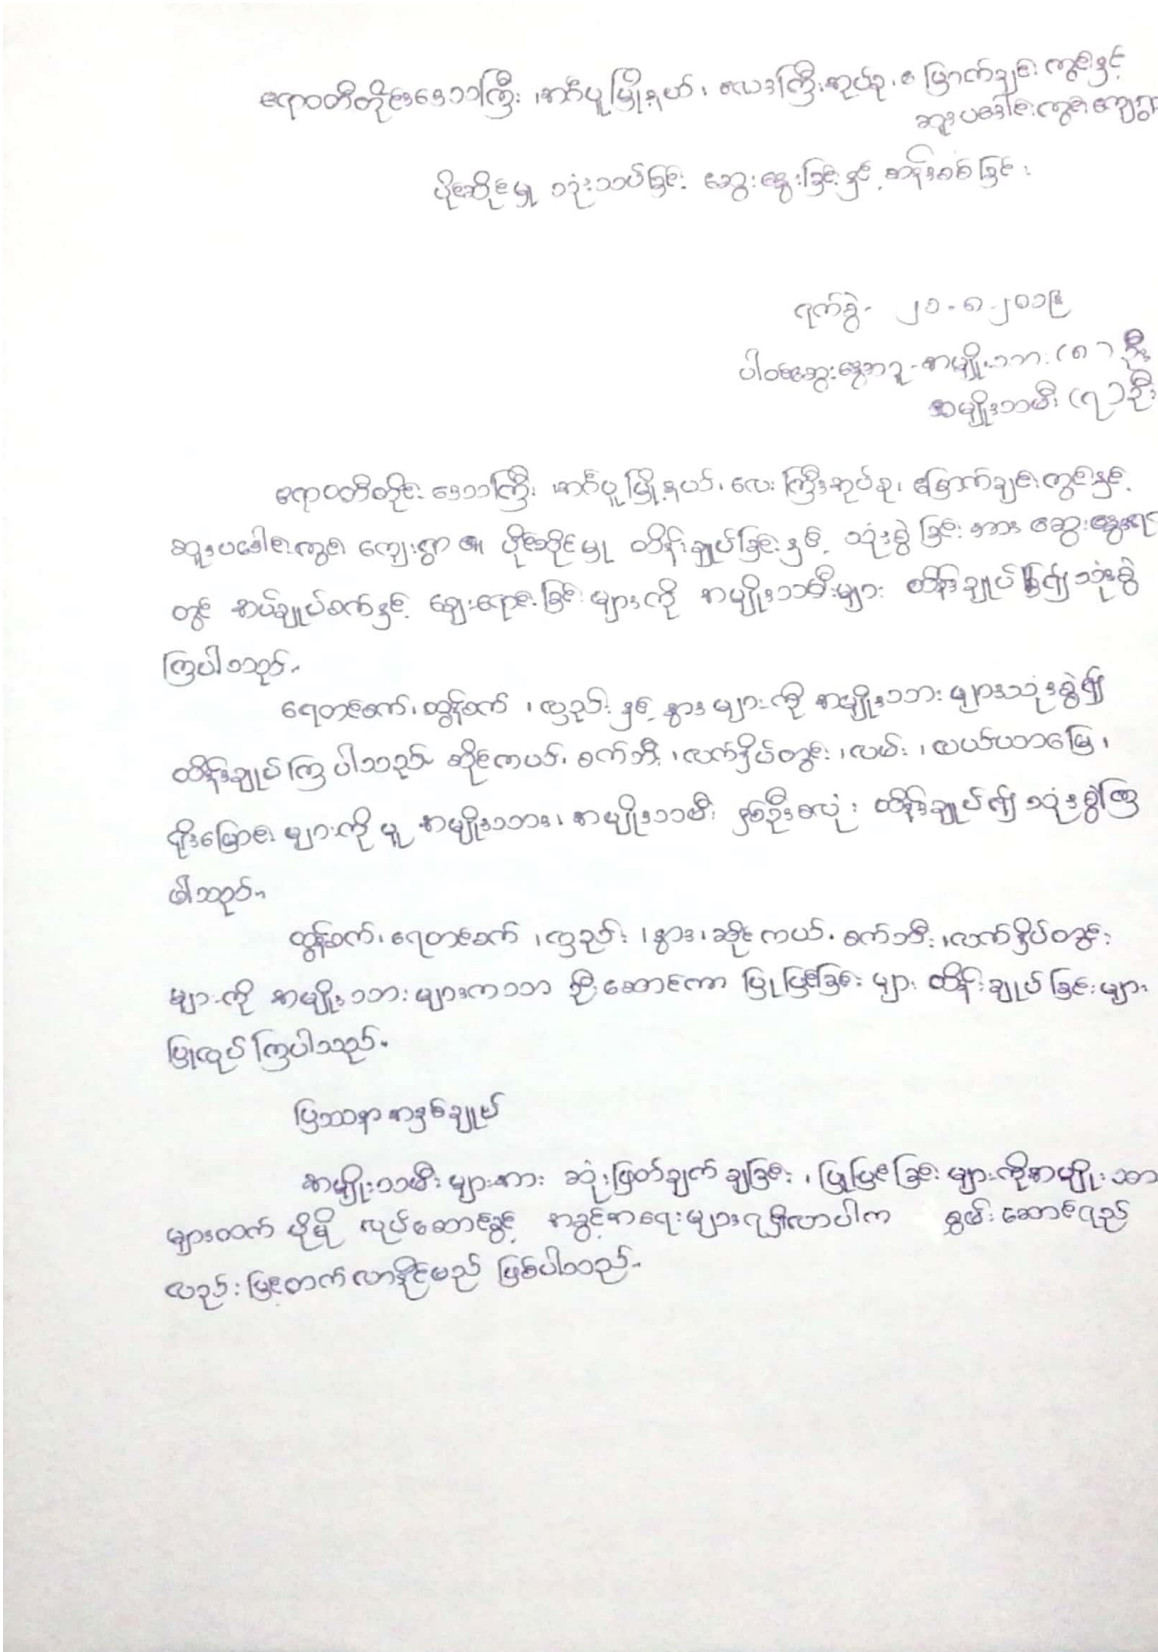 ဧရာဝတီတိုင်းဒေသကြီး ၊အင်္ဂပူမြို့နယ်၊ လေးကြီးအုပ်စု၊ မြောက်ချောင်းကွင်းနှင့်
ဆူးပဒေါင်းကွင်းကျေးရွာ
ပိုင်ဆိုင်မှု သုံးသပ်ခြင်း ဆွေးနွေးခြင်းနှင့် စာန်းစစ်ခြင်း
ရက်စွဲ- ၂၁-၈-၂၀၁၉
ပါဝင်ဆွေးနွေးသူ-အမျိုးသား (၈) ဦး
အမျိုးသမီး (၇) ဦး
ဧရာဝတီတိုင်း ဒေသကြီး ၊အင်္ဂပူမြို့နယ်၊ လေးကြီးအုပ်စု၊ မြောက်ချောင်းကွင်းနှင့်
ဆူးပဒေါင်းကွင်း ကျေးရွာ ၏ ပိုင်ဆိုင်မှု ထိန်းချုပ်ခြင်းနှင့် သုံးစွဲခြင်းအား ဆွေးနွေးရာ
တွင် အပ်ချုပ်စက်နှင့် ဈေးရောင်းခြင်းများကို အမျိုးသမီးများ ထိန်းချုပ်၍ သုံးစွဲ
ကြပါသည်။
ရေတင်စက်၊ ထွန်စက် ၊ လှည်း နှင့် နွားများကို အမျိုးသားများသုံးစွဲ၍
ထိန်းချုပ်ကြပါသည်။ ဆိုင်ကယ်၊ စက်ဘီး ၊လက်နှိပ်တွင်း ၊လမ်း ၊ လယ်ယာမြေ ၊
ရိုးမြောင်းများကိုမူ အမျိုးသား၊ အမျိုးသမီး နှစ်ဦးစလုံး ထိန်းချုပ်၍ သုံးစွဲကြ
ပါသည်။
ထွန်စက်၊ ရေတင်စက် ၊လှည်း ၊နွား၊ ဆိုင်ကယ်၊ စက်ဘီး ၊လက်နှိပ်တွင်း
များကို အမျိုးသားများကသာ ဦးဆောင်ကာ ပြုပြင်ခြင်းများ ထိန်းချုပ်ခြင်းများ
ပြုလုပ်ကြပါသည်။
ပြဿနာအနှစ်ချုပ်
အမျိုးသမီးများအား ဆုံးဖြတ်ချက်ချခြင်း ၊ပြုပြင်ခြင်းများကိုအမျိုးသား
များထက် ပိုမို လုပ်ဆောင်ခွင့် အခွင့်အရေးများရရှိလာပါက စွမ်းဆောင်ရည်
လည်းမြင့်တက်လာနိုင်မည် ဖြစ်ပါသည်။